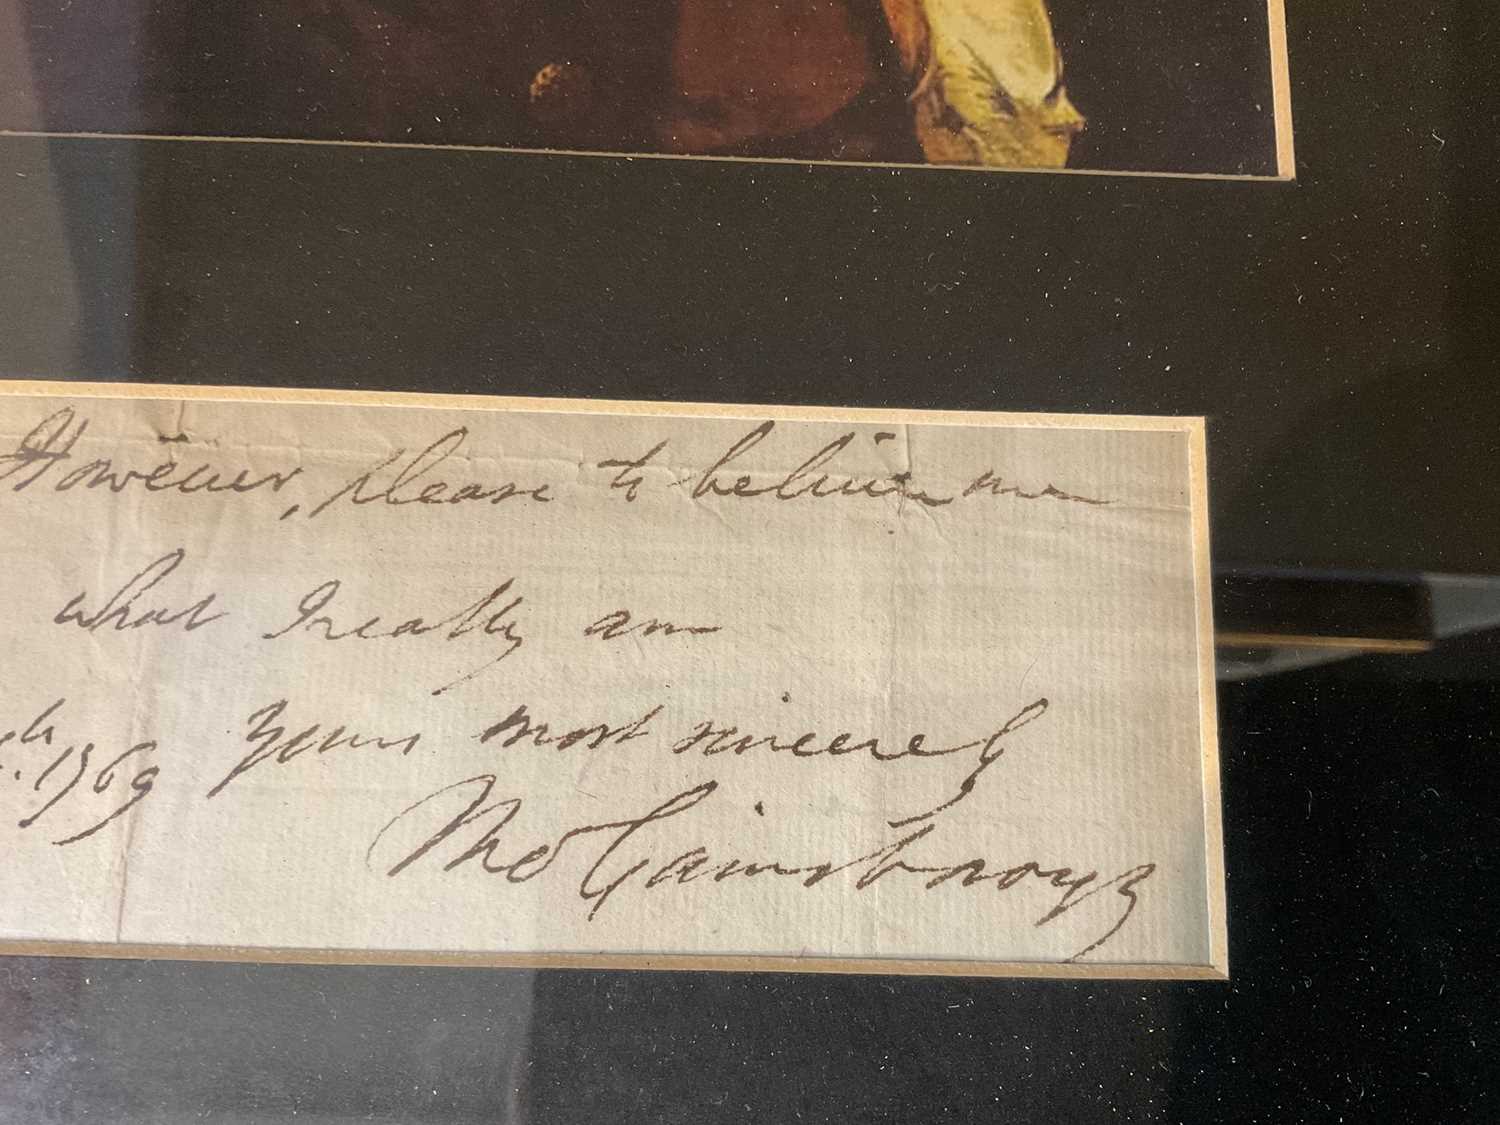 However, please to believe me
what I really am
Yours most sincerely
1769
Tho Gainsboro